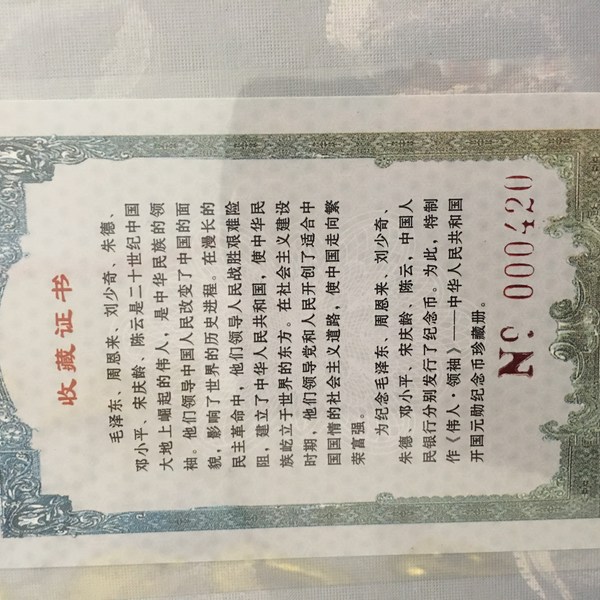 收藏证书
毛泽东、周恩来、刘少奇、朱德、
邓小平、宋庆龄、陈云是二十世纪中国
大地上崛起的伟人，是中华民族的领
袖。他们领导中国人民改变了中国的面
貌，影响了世界的历史进程。在漫长的
民主革命中，他们领导人民战胜艰难险
阻，建立了中华人民共和国，使中华民
族屹立于世界的东方。在社会主义建设
时期，他们领导党和人民开创了适合中
国国情的社会主义道路，使中国走向繁
荣富强。
为纪念毛泽东、周恩来、刘少奇、
朱德、邓小平、宋庆龄、陈云，中国人
民银行分别发行了纪念币。为此，特制
作《伟人·领袖》——中华人民共和国
开国元勋纪念币珍藏册。
No 000420